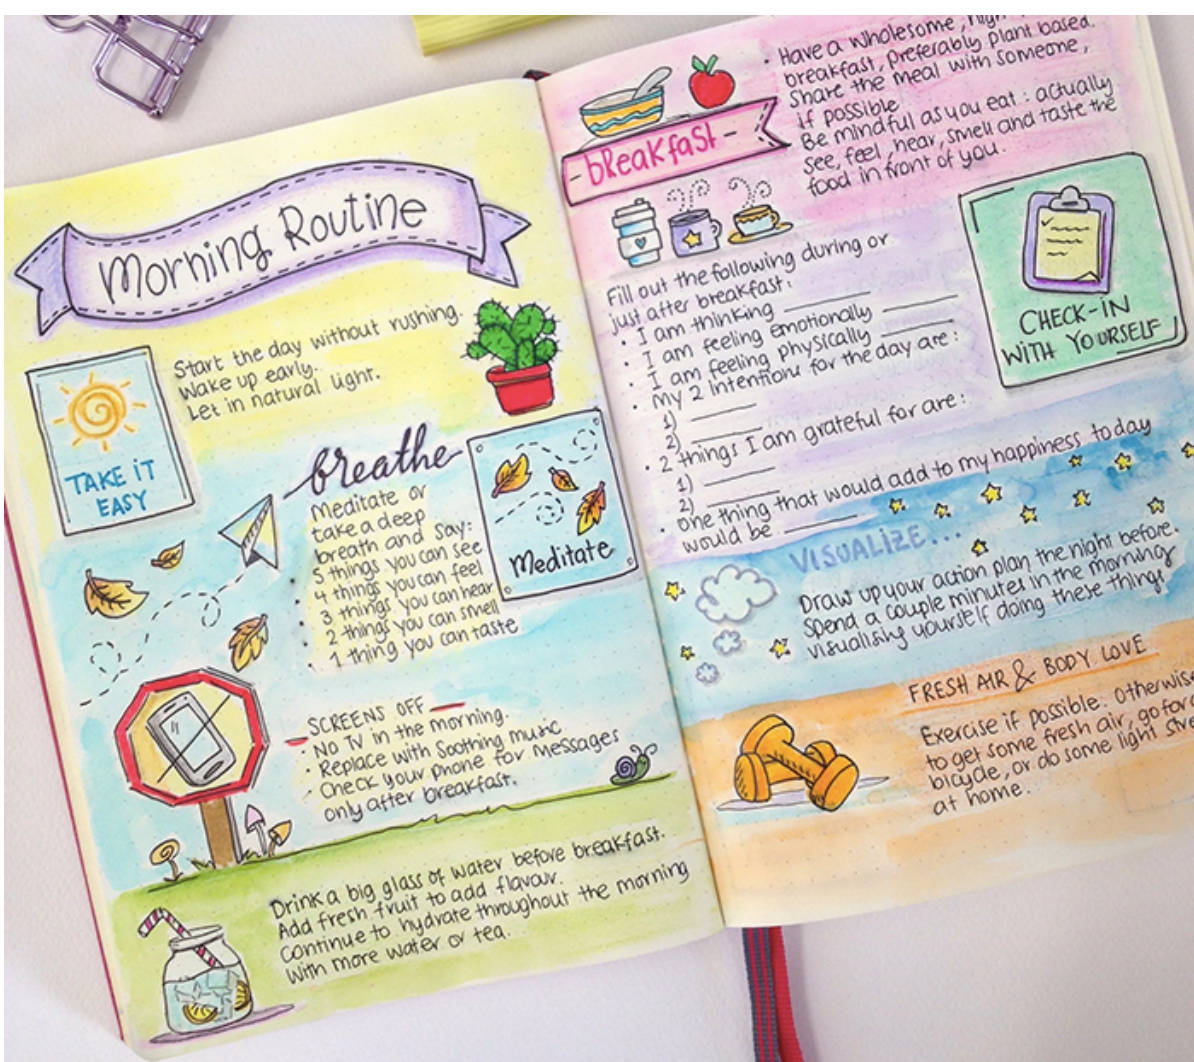 Morning Routine
Start the day without rushing.
Wake up early.
Let in natural light.
TAKE IT
EASY
breathe
Meditate or
take a deep
breath and say:
• 5 things you can see
• 4 things you can feel
• 3 things you can hear
• 2 things you can smell
• 1 thing you can taste
Meditate
SCREENS OFF
• No TV in the morning.
• Replace with soothing music
• Check your phone for messages
only after breakfast.
Drink a big glass of water before breakfast.
Add fresh fruit to add flavour.
Continue to hydrate throughout the morning
with more water or tea.
- breakfast -
• Have a wholesome,
breakfast, preferably plant based.
Share the meal with someone,
if possible
Be mindful as you eat: actually
see, feel, hear, smell and taste the
food in front of you.
Fill out the following during or
just after breakfast:
• I am thinking
• I am feeling emotionally
• I am feeling physically
• My 2 intentions for the day are:
1)
2)
• 2 things I am grateful for are:
1)
2)
• One thing that would add to my happiness today
would be
CHECK-IN
WITH YOURSELF
VISUALIZE...
Draw up your action plan the night before.
Spend a couple minutes in the morning
visualising yourself doing these things
FRESH AIR & BODY LOVE
Exercise if possible. Otherwise
to get some fresh air, go for a
bicycle, or do some light
at home.